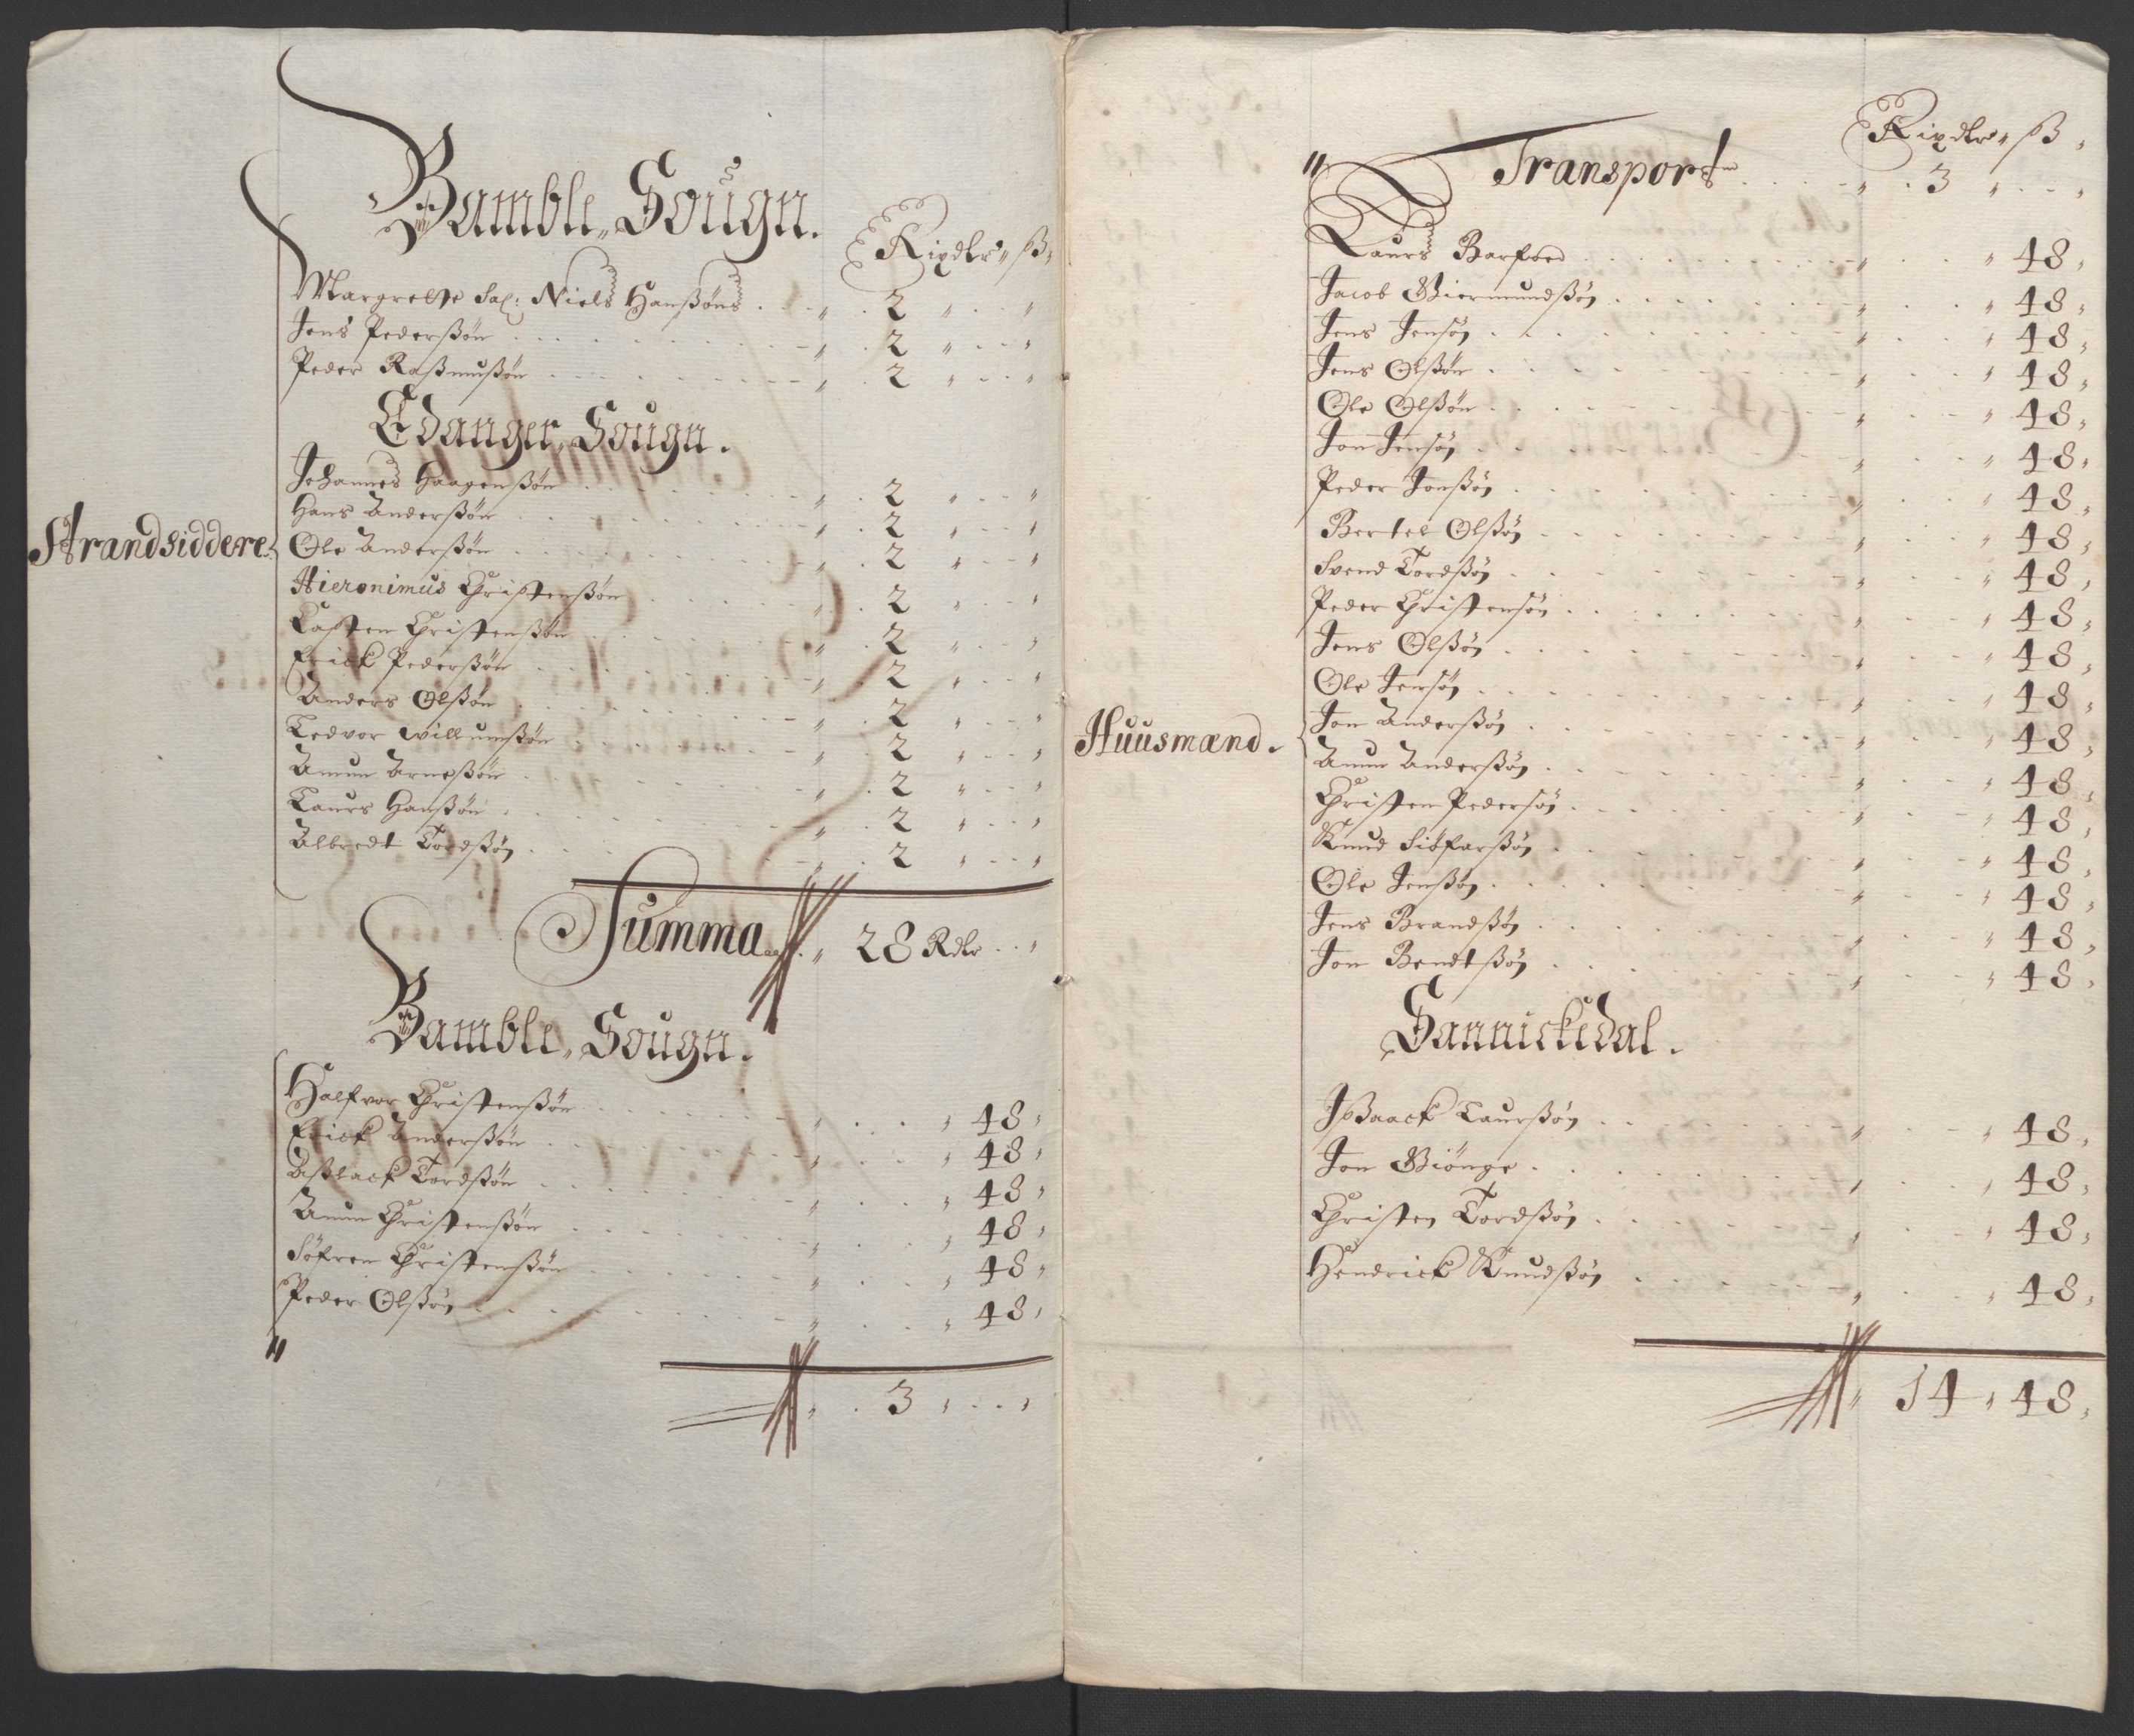 Bamble Sougn.
Rixdlr ß
Margrethe Sal: Niels Hanßøns 2
Jens Pederßøn 2
Peder Raßmußøn 2
Edanger Sougn.
Strandsiddere
Johannes Haagenßøn 2
Hans Anderßøn 2
Ole Anderßøn 2
Hieronimus Christenßøn 2
Casten Christenßøn 2
Erick Pederßøn 2
Anders Olßøn 2
Tedvor Willumßøn 2
Amun Arneßøn 2
Laurs Hanßøn 2
Albredt Tordßøn 2
Summa 28 Rdlr
Bamble Sougn.
Halfvor Christenßøn 48
Erick Anderßøn 48
Aßlack Tordßøn 48
Amun Christenßøn 48
Søfren Christenßøn 48
Peder Olßøn 48
3
Rixdlr ß
Transport 3
Huusmænd.
Laurs Barfoed 48
Jacob Giermundßøn 48
Jens Jensøn 48
Jens Olßøn 48
Ole Olßøn 48
Jon Jensøn 48
Peder Jonßøn 48
Bertel Olßøn 48
Svend Tordßøn 48
Peder Christensøn 48
Jens Olßøn 48
Ole Jensøn 48
Jon Anderßøn 48
Amun Anderßøn 48
Christen Pedersøn 48
Knud Siøfarßøn 48
Ole Jenßøn 48
Jens Brandßøn 48
Jon Bendtßøn 48
Sannickedal.
Ißaack Laurßøn 48
Jon Giønge 48
Christen Tordßøn 48
Hendrick Knudßøn 48
14 48